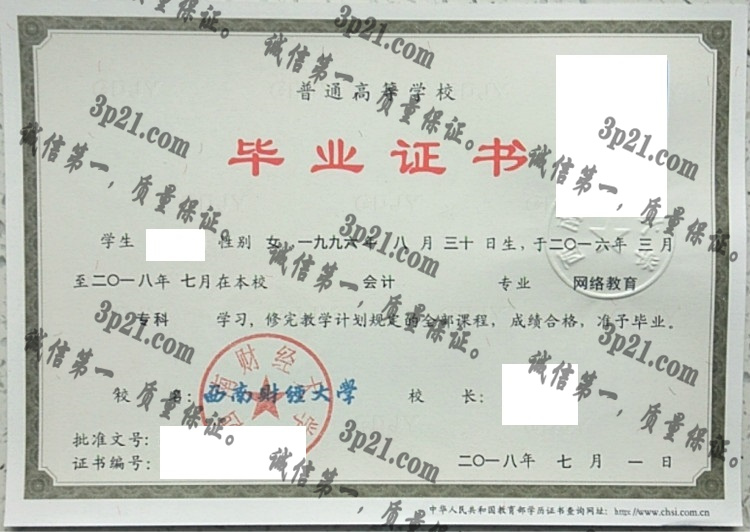 普通高等学校
毕业证书
学生 性别 女，一九九六年 八 月 三十 日生，于二〇一六年 三 月
至二〇一八年 七月在本校 会计 专业 网络教育
专科 学习，修完教学计划规定的全部课程，成绩合格，准予毕业。
校 名：西南财经大学 校 长：
批准文号：
证书编号： 二〇一八年 七 月 一 日
中华人民共和国教育部学历证书查询网址：http://www.chsi.com.cn
西南财经大学
3p21.com
诚信第一，质量保证。
3p21.com
诚信第一，质量保证。
3p21.com
诚信第一，质量保证。
3p21.com
诚信第一，质量保证。
3p21.com
诚信第一，质量保证。
3p21.com
诚信第一，质量保证。
3p21.com
诚信第一，质量保证。
质量保证。